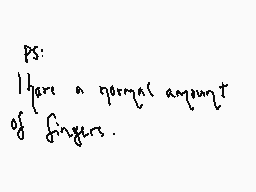 PS:
I have a normal amount
of fingers.